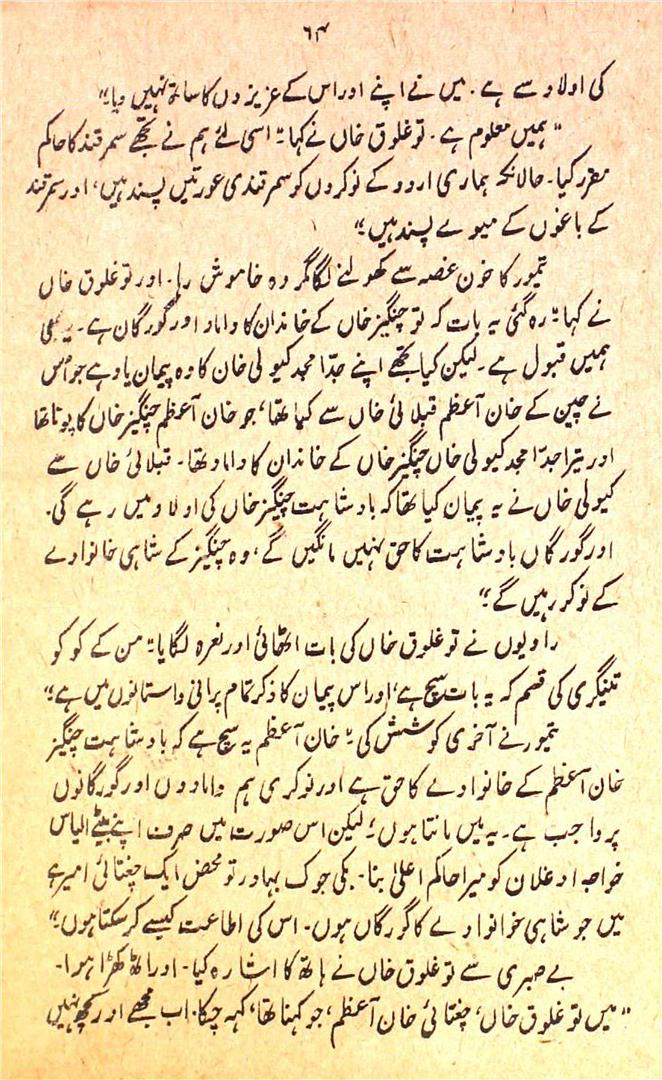 ۶۴
کی اولاد سے ہے۔ میں نے اپنے اور اس کے عزیزوں کا ساتھ نہیں دیا۔"
"ہمیں معلوم ہے۔ تو غلوق خاں نے کہا: "اسی لئے ہم نے تجھے سمرقند کا حاکم
مقرر کیا۔ حالانکہ ہماری اردو کے نوکروں کو سمرقندی عورتیں پسند ہیں، اور سمرقند
کے باغوں کے میوے پسند ہیں۔"
تیمور کا خون غصہ سے کھولنے لگا مگر وہ خاموش رہا۔ اور تو غلوق خاں
نے کہا: "رہ گئی یہ بات کہ تو چنگیز خاں کے خاندان کا داماد اور گورگان ہے۔ یہ بھی
ہمیں قبول ہے۔ لیکن کیا تجھے اپنے جدّ امجد کیولی خان کا وہ پیمان یاد ہے جو اُس
نے چین کے خان آعظم قبلائی خاں سے کیا تھا، جو خان آعظم چنگیز خاں کا پوتا تھا
اور تیرا جدّ امجد کیولی خاں چنگیز خاں کے خاندان کا داماد تھا۔ قبلائی خاں سے
کیولی خاں نے یہ پیمان کیا تھا کہ بادشاہت چنگیز خاں کی اولاد میں رہے گی۔
اور گورگاں بادشاہت کا حق نہیں مانگیں گے، وہ چنگیز کے شاہی خانوادے
کے نوکر رہیں گے۔"
راویوں نے تو غلوق خاں کی بات اٹھائی اور نعرہ لگایا: "من کے کو کو
تینگری کی قسم کہ یہ بات سچ ہے، اور اس پیمان کا ذکر تمام پرانی داستانوں میں ہے۔"
تیمور نے آخری کوشش کی: "خان آعظم یہ سچ ہے کہ بادشاہت چنگیز
خان آعظم کے خانوادے کا حق ہے اور نوکری ہم دامادوں اور گورگانوں
پر واجب ہے۔ یہ میں مانتا ہوں؛ لیکن اس صورت میں صرف اپنے بیٹے الیاس
خواجہ اوغلان کو میرا حاکم اعلیٰ بنا۔ بکی جوک بہادر تو محض ایک چغتائی امیر ہے
میں جو شاہی خوانوادے کا گورگاں ہوں۔ اس کی اطاعت کیسے کر سکتا ہوں۔"
بے صبری سے تو غلوق خاں نے ہاتھ کا اشارہ کیا۔ اور اٹھ کھڑا ہوا۔
"میں تو غلوق خاں، چغتائی خان آعظم، جو کہنا تھا، کہہ چکا۔ اب مجھے اور کچھ نہیں